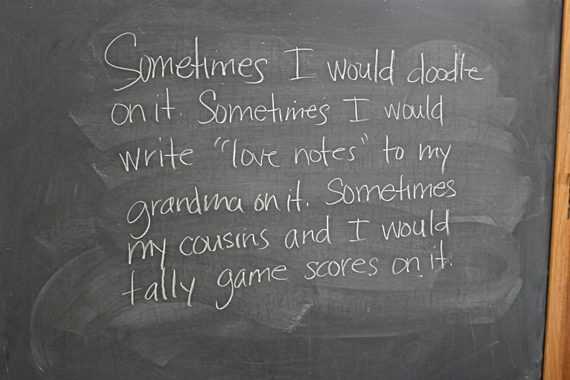 Sometimes I would doodle
on it. Sometimes I would
write "love notes" to my
grandma on it. Sometimes
my cousins and I would
tally game scores on it.